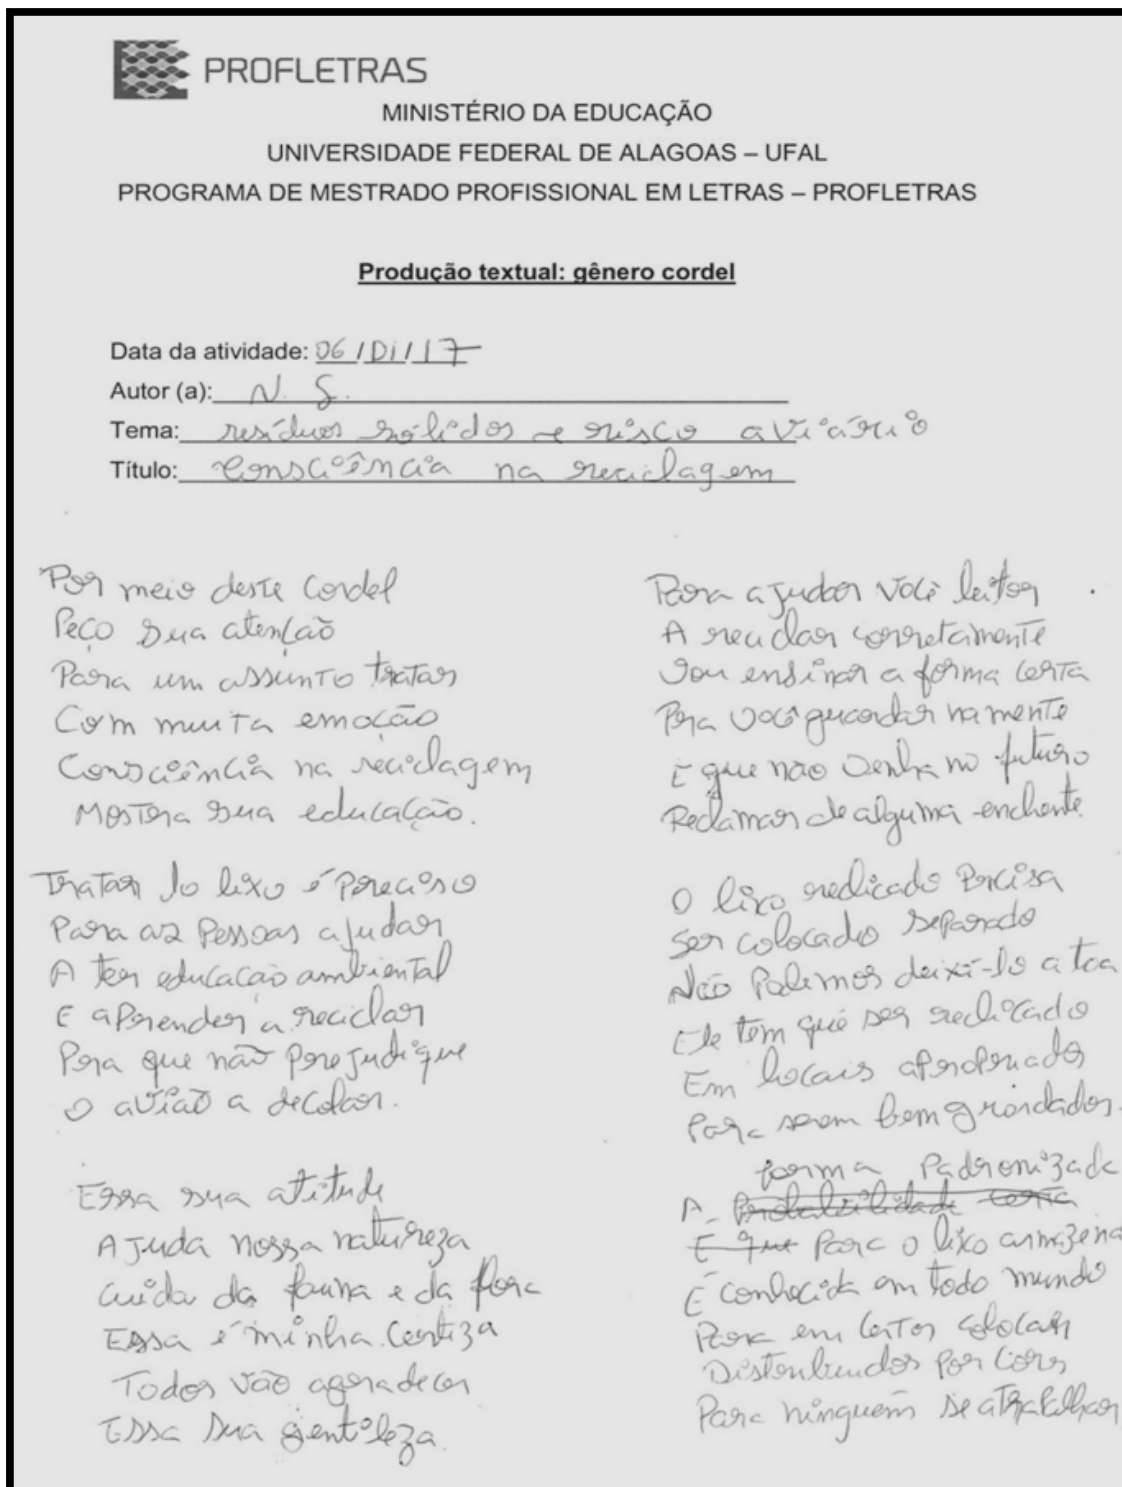 PROFLETRAS
MINISTÉRIO DA EDUCAÇÃO
UNIVERSIDADE FEDERAL DE ALAGOAS – UFAL
PROGRAMA DE MESTRADO PROFISSIONAL EM LETRAS – PROFLETRAS
Produção textual: gênero cordel
Data da atividade: 06/01/17
Autor (a): N. S.
Tema: resíduos sólidos e risco aviário
Título: Consciência na reciclagem
Por meio deste cordel
Peço sua atenção
Para um assunto tratar
Com muita emoção
Consciência na reciclagem
Mostra sua educação.
Tratar do lixo é preciso
Para as pessoas ajudar
A ter educação ambiental
E aprender a reciclar
Pra que não prejudique
O avião a decolar.
Essa sua atitude
Ajuda nossa natureza
Cuida da fauna e da flora
Essa é minha certeza
Todos vão agradecer
Essa sua gentileza.
Para ajudar você leitor
A reciclar corretamente
Vou ensinar a forma certa
Pra você guardar na mente
E que não venha no futuro
Reclamar de alguma enchente.
O lixo reclicado precisa
Ser colocado separado
Não podemos deixá-lo a toa
Ele tem que ser reclicado
Em locais apropriados
Para serem bem
forma padronizada
A Probabilidade certa
E que Para o lixo armazena
É conhecida em todo mundo
Para em certos colocar
Distribuidos por cores
Para ninguém se atrapalhar